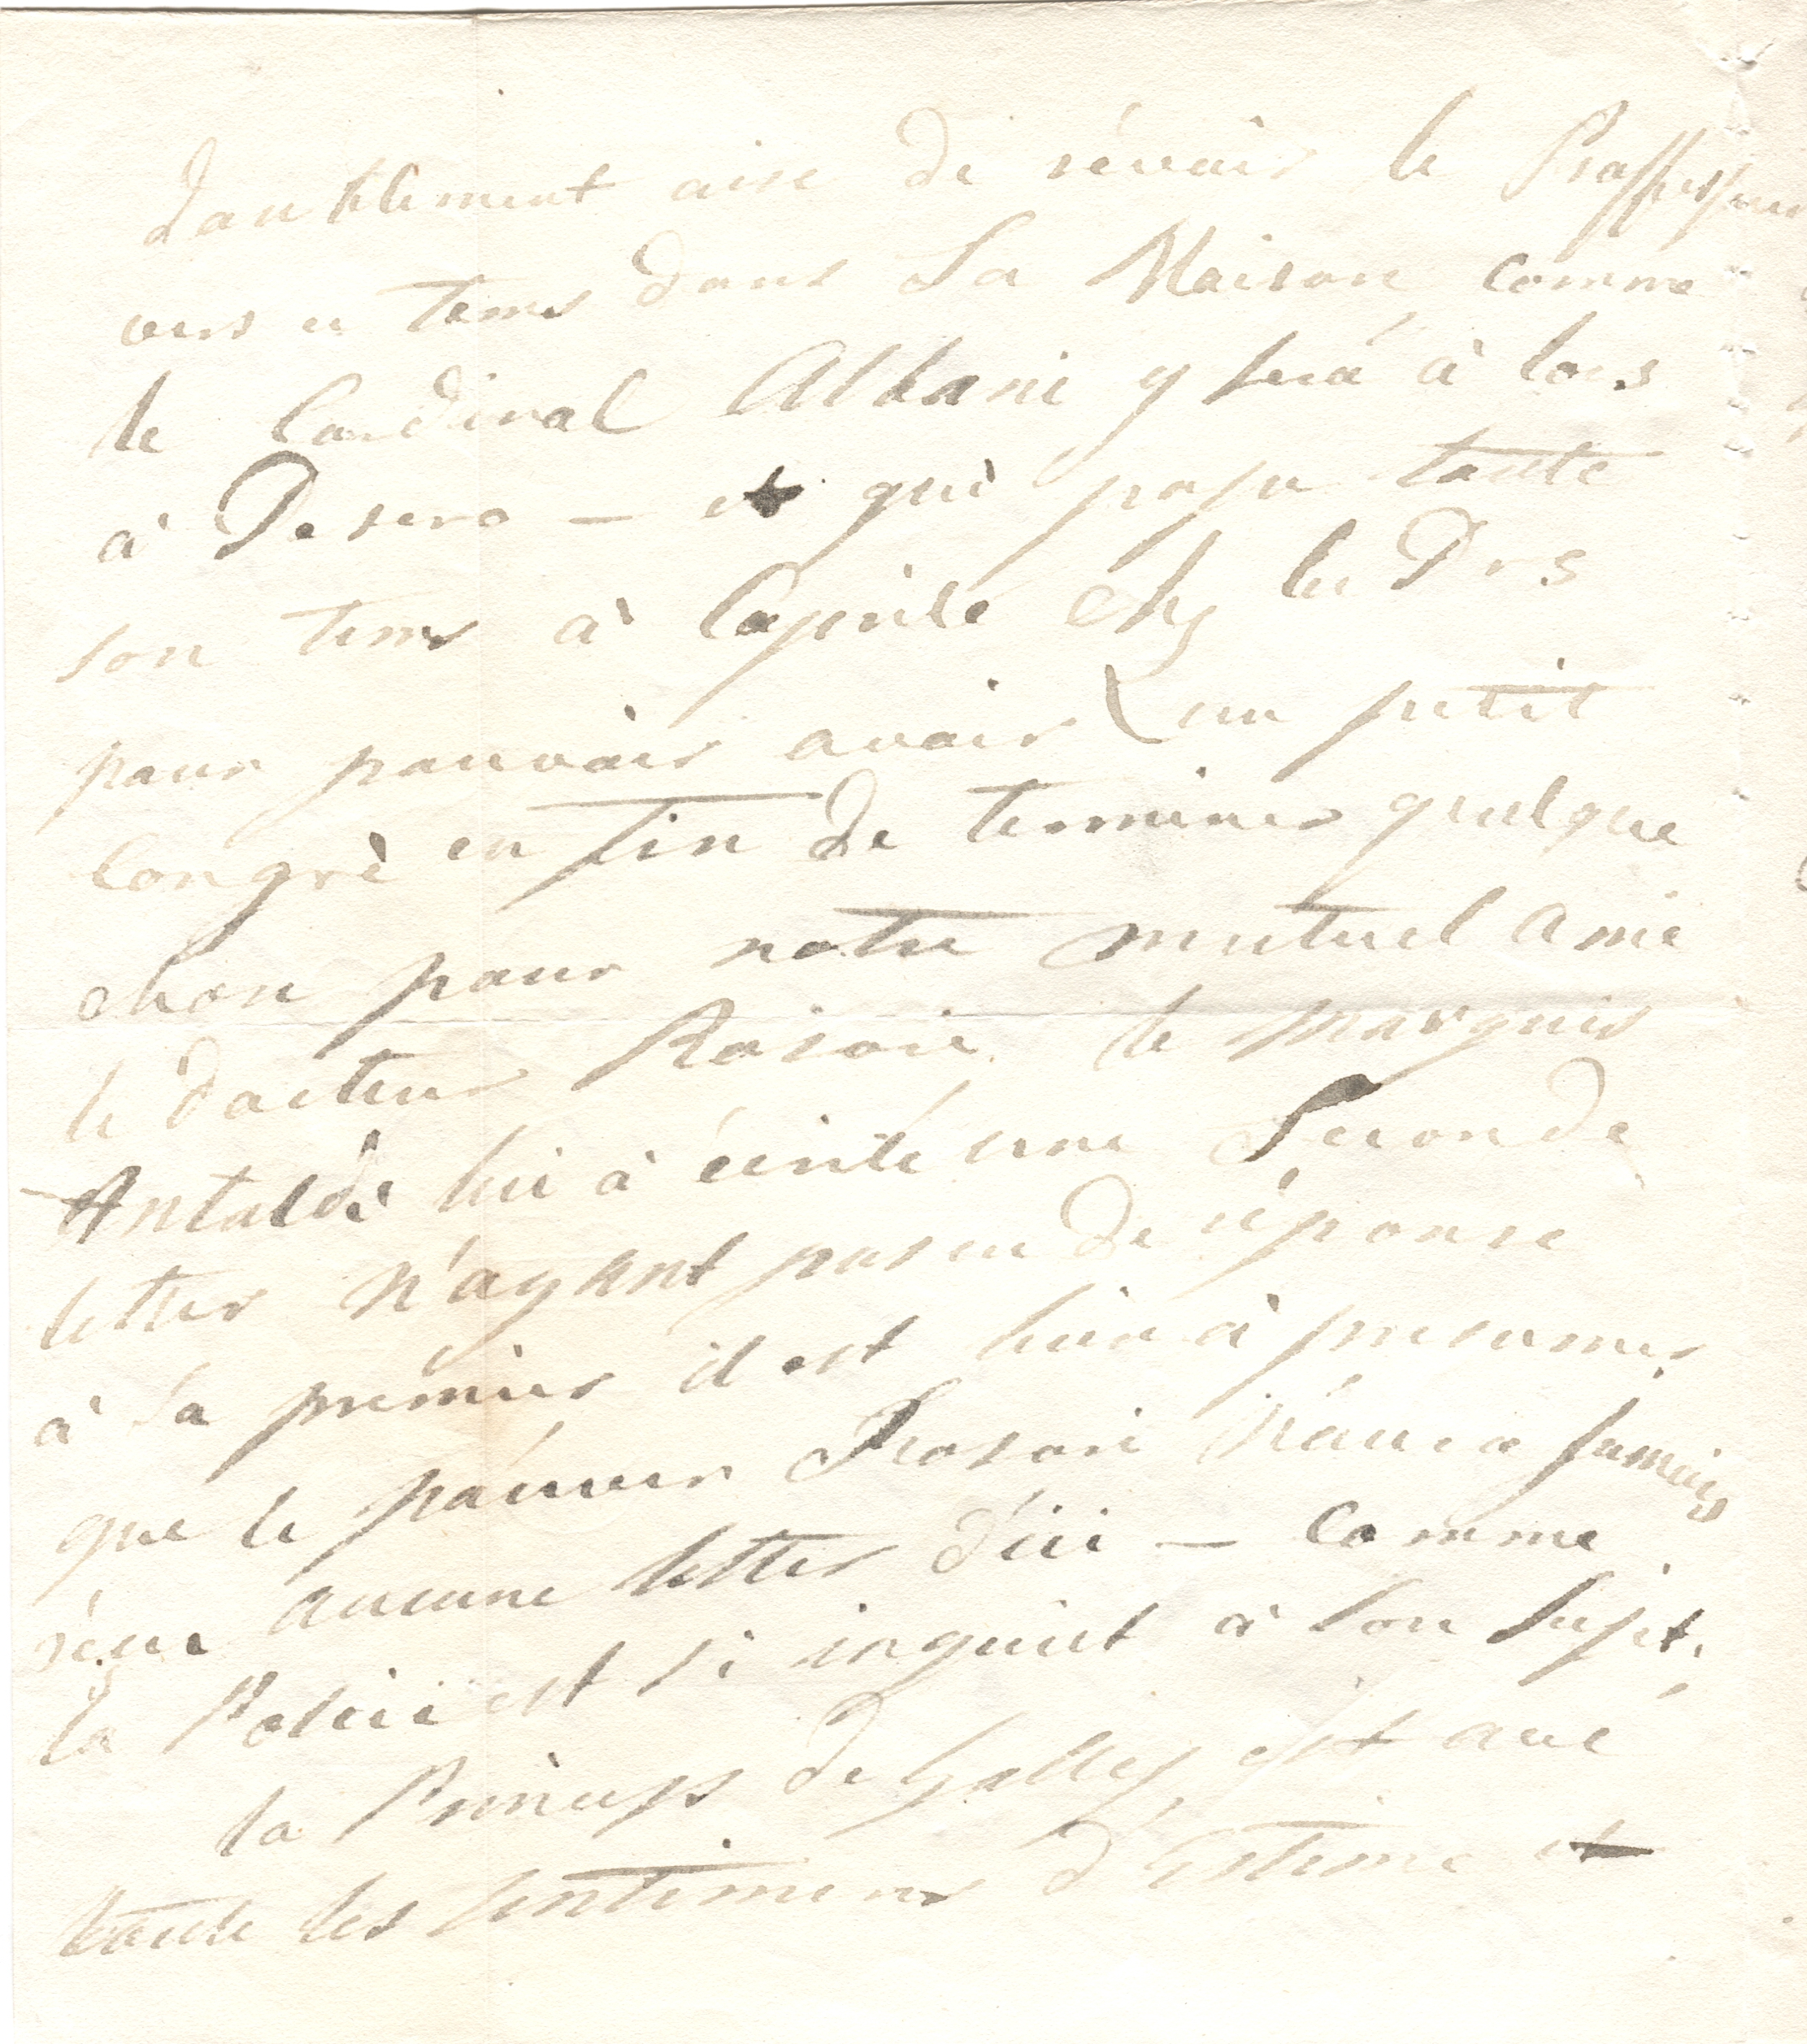 doublement aise de révoir le Proffesseur
vers ce tems dans Sa Maison comme
le Cardinal Albani y será à lors
à Pesero — et qui passe toute
son tems à Caprile chez les Prs
pour pouvoir avoir un petit
Congrè en fin de terminer quelque
chose pour notre mutuel Amie
le docteur Rasori. le Marquis
Antaldi lui à écrite une Seconde
letter N'ayant pas eu de réponse
à la premier il est bien à presumer
que le páuver Rasori N'aura jamais
réçue aucune letter d'ici — Comme
la Policie est si inquiet à son sujet.
la Princess de Galles est avec
toute les sentimens d'Estime et